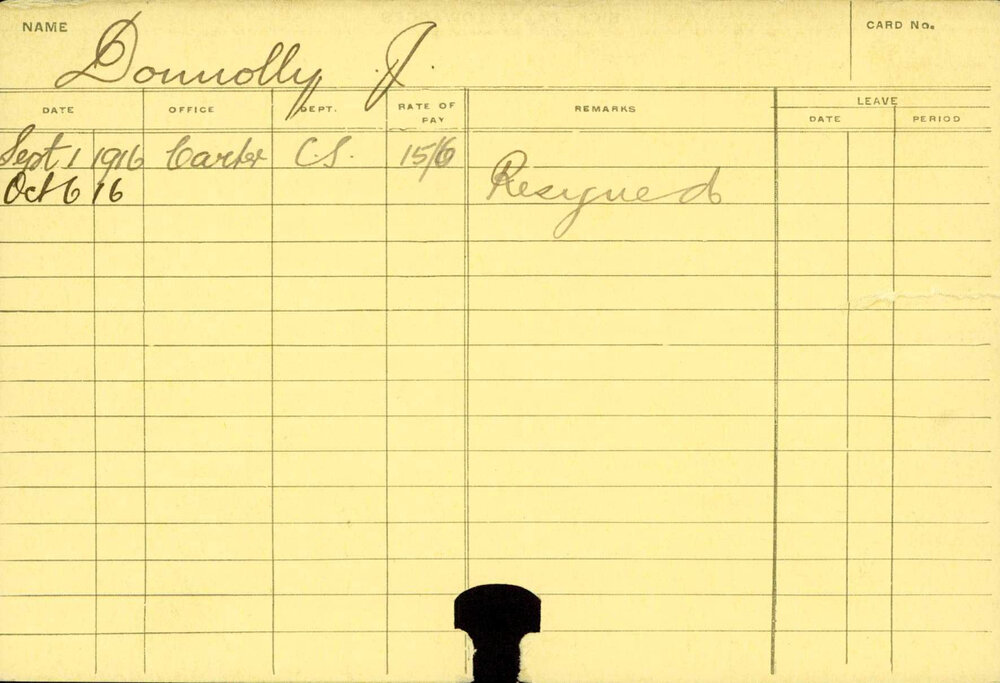 NAME Donnolly J. CARD No.
DATE OFFICE DEPT. RATE OF PAY REMARKS LEAVE
DATE PERIOD
Sept 1 1916 Carter C.S. 15/6
Oct 6 16 Resigned